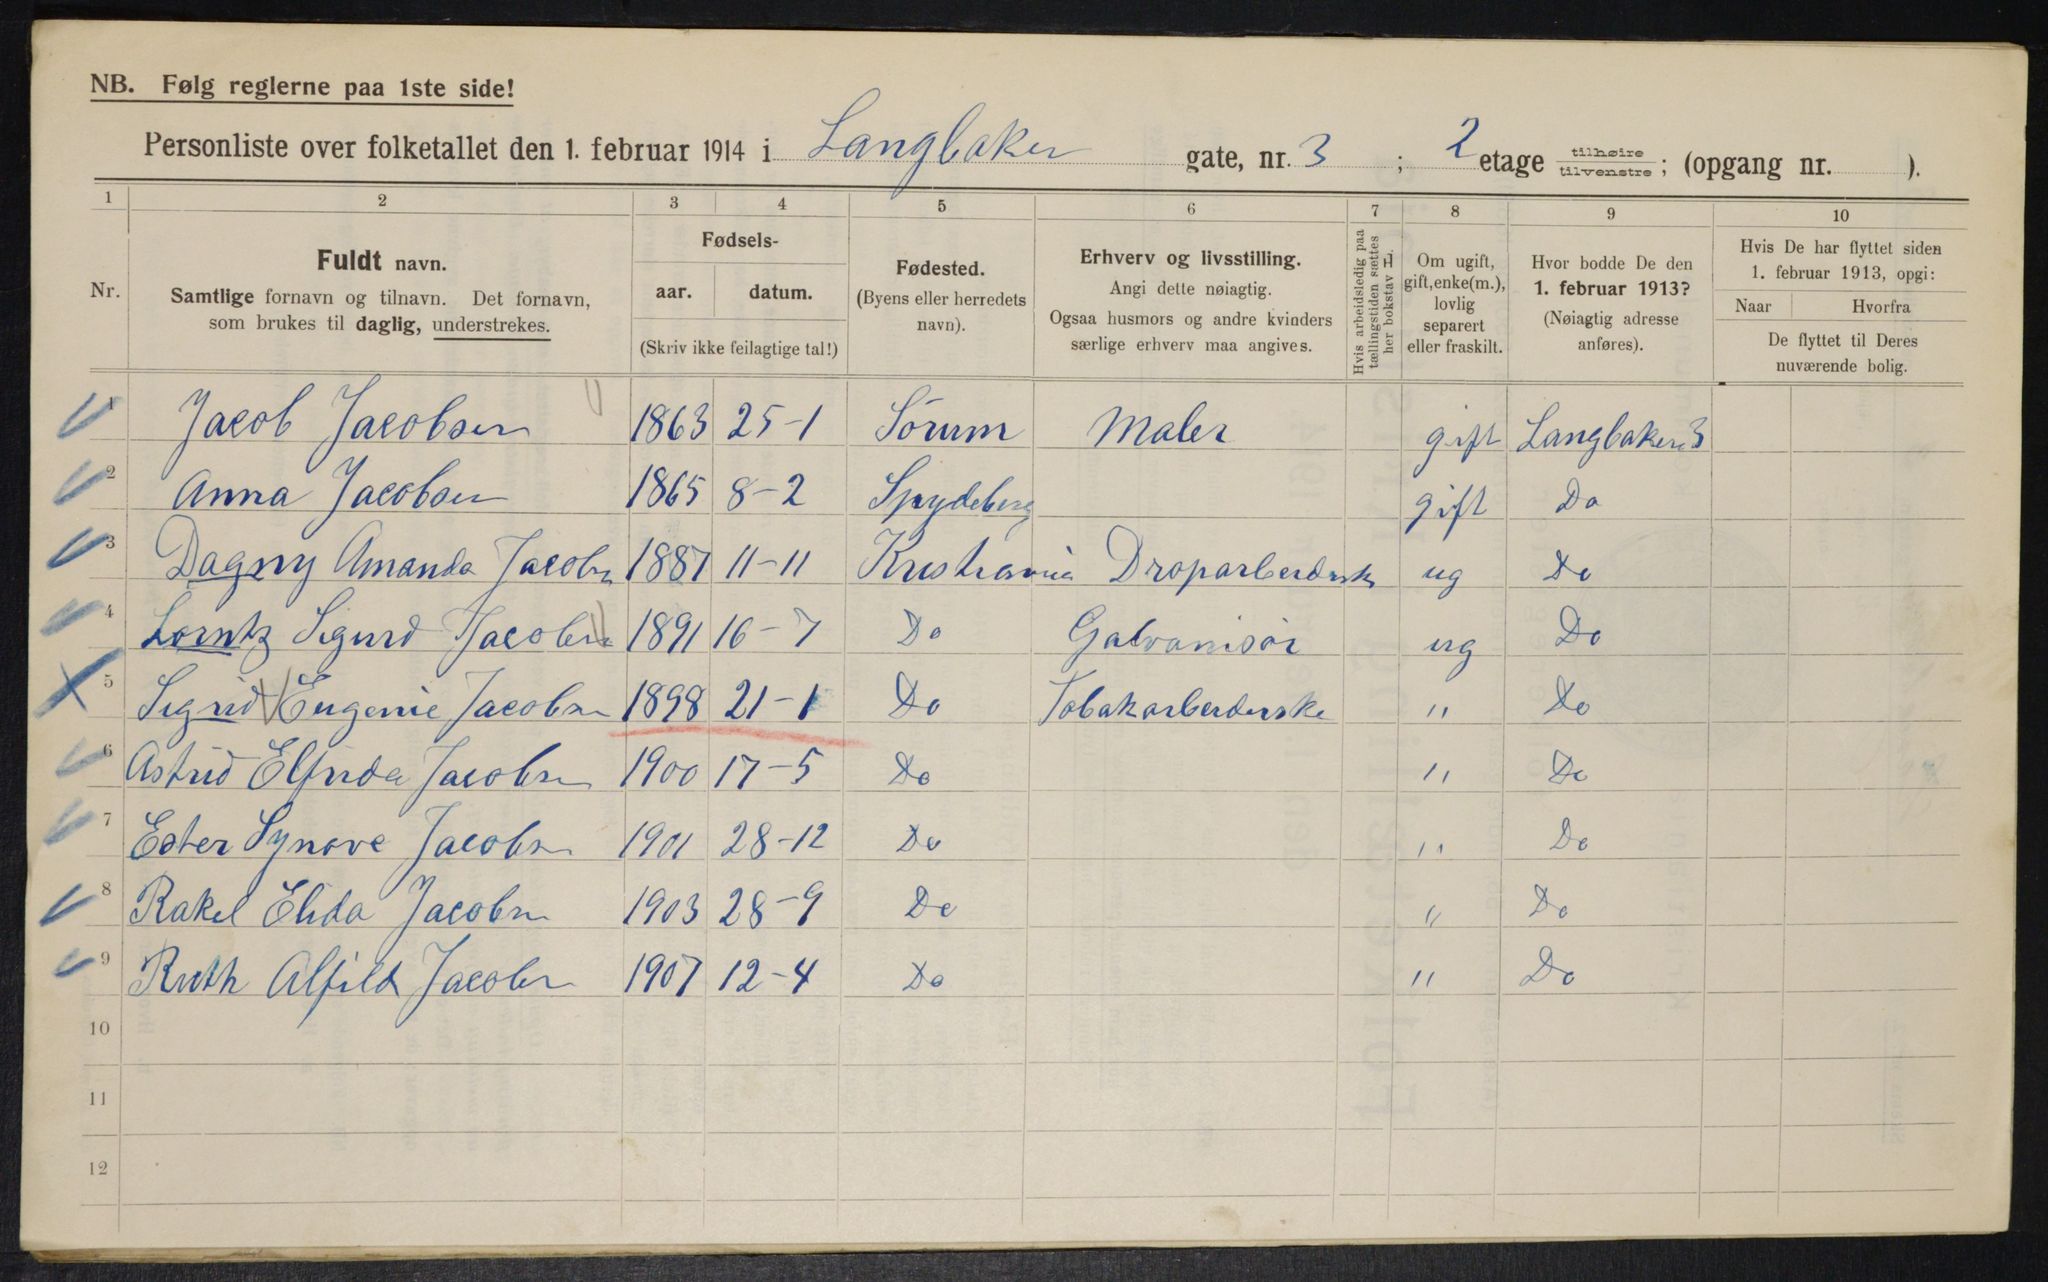 NB. Følg reglerne paa 1ste side!
Personliste over folketallet den 1. februar 1914 i Langbaken gate, nr. 3 ; 2 etage tilhøire/tilvenstre; (opgang nr. ).
1 2 3 4 5 6 7 8 9 10
Nr.
Fuldt navn.
Samtlige fornavn og tilnavn. Det fornavn,
som brukes til daglig, understrekes.
Fødsels-
aar. datum.
(Skriv ikke feilagtige tal!)
Fødested.
(Byens eller herredets
navn).
Erhverv og livsstilling.
Angi dette nøiagtig.
Ogsaa husmors og andre kvinders
særlige erhverv maa angives.
Hvis arbeidsledig paa
tællingstiden sættes
her bokstav L.
Om ugift,
gift, enke(m.),
lovlig
separert
eller fraskilt.
Hvor bodde De den
1. februar 1913?
(Nøiagtig adresse
anføres).
Hvis De har flyttet siden
1. februar 1913, opgi:
Naar Hvorfra
De flyttet til Deres
nuværende bolig.
1 Jacob Jacobsen 1863 25-1 Sörum Maler gift Langbaken 3
2 Anna Jacobsen 1865 8-2 Spydeberg gift Do
3 Dagny Amanda Jacobsen 1887 11-11 Kristiania Droparbeiderske ug Do
4 Lorntz Sigurd Jacobsen 1891 16-7 Do Galvanisör ug Do
5 Sigrid Eugenie Jacobsen 1898 21-1 Do Tobakarbeiderske " Do
6 Astrid Elfrida Jacobsen 1900 17-5 Do " Do
7 Ester Synove Jacobsen 1901 28-12 Do " Do
8 Rakel Elida Jacobsen 1903 28-9 Do " Do
9 Ruth Alfild Jacobsen 1907 12-4 Do " Do
10
11
12